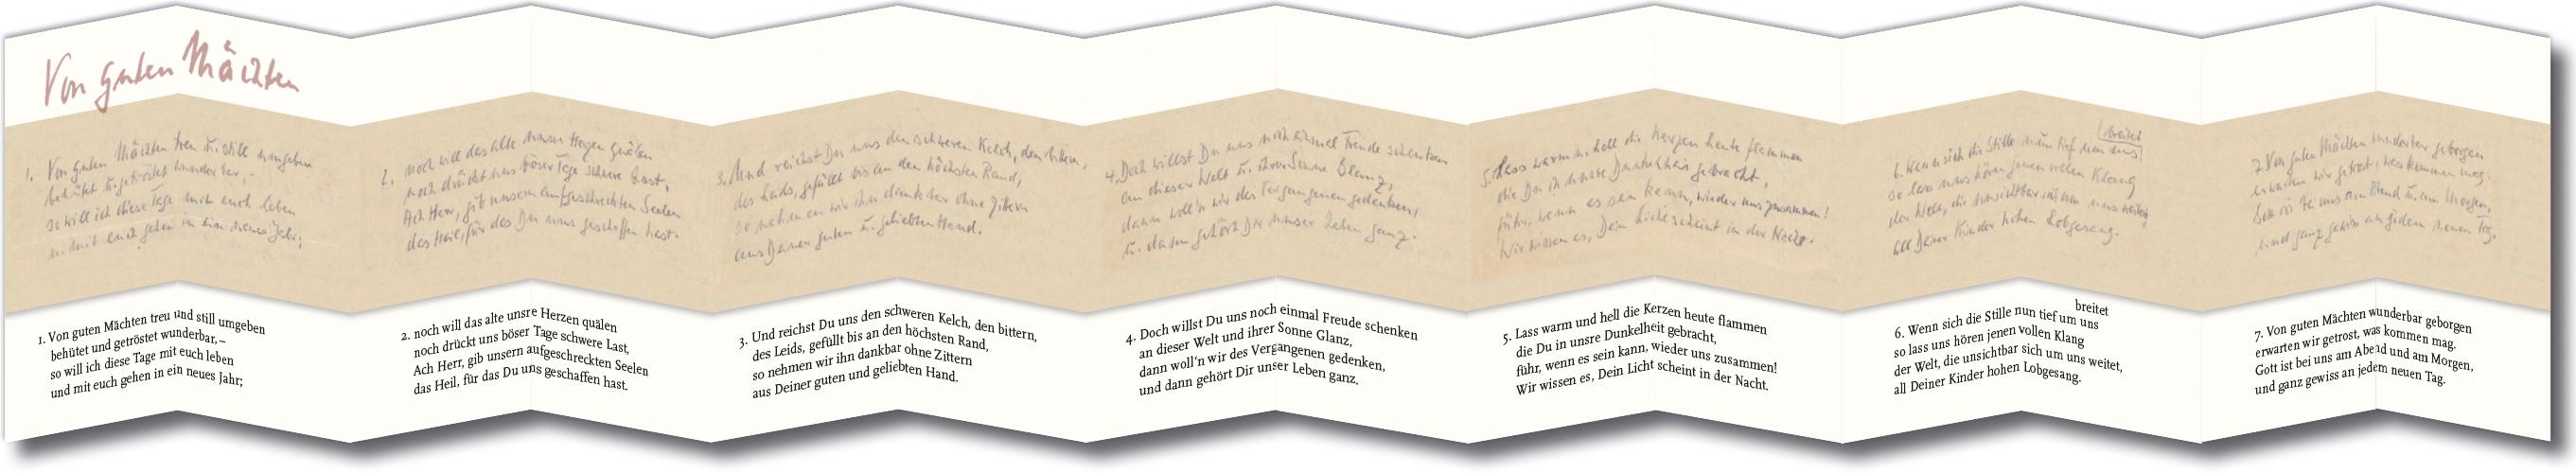 Von guten Mächten
1. Von guten Mächten treu u. still umgeben
behütet u. getröstet wunderbar, –
so will ich diese Tage mit euch leben
u. mit euch gehen in ein neues Jahr;
2. noch will das alte unsre Herzen quälen
noch drückt uns böser Tage schwere Last,
Ach Herr, gib unsern aufgeschreckten Seelen
das Heil, für das Du uns geschaffen hast.
3. Und reichst Du uns den schweren Kelch, den bittern,
des Leids, gefüllt bis an den höchsten Rand,
so nehmen wir ihn dankbar ohne Zittern
aus Deiner guten u. geliebten Hand.
4. Doch willst Du uns noch einmal Freude schenken
an dieser Welt u. ihrer Sonne Glanz,
dann woll'n wir des Vergangenen gedenken,
u. dann gehört Dir unser Leben ganz.
5. Lass warm u. hell die Kerzen heute flammen
die Du in unsre Dunkelheit gebracht,
führ, wenn es sein kann, wieder uns zusammen!
Wir wissen es, Dein Licht scheint in der Nacht.
breitet
6. Wenn sich die Stille nun tief um uns
so lass uns hören jenen vollen Klang
der Welt, die unsichtbar sich um uns weitet,
all Deiner Kinder hohen Lobgesang.
7. Von guten Mächten wunderbar geborgen
erwarten wir getrost, was kommen mag.
Gott ist bei uns am Abend u. am Morgen,
und ganz gewiss an jedem neuen Tag.
1. Von guten Mächten treu und still umgeben
behütet und getröstet wunderbar,–
so will ich diese Tage mit euch leben
und mit euch gehen in ein neues Jahr;
2. noch will das alte unsre Herzen quälen
noch drückt uns böser Tage schwere Last,
Ach Herr, gib unsern aufgeschreckten Seelen
das Heil, für das Du uns geschaffen hast.
3. Und reichst Du uns den schweren Kelch, den bittern,
des Leids, gefüllt bis an den höchsten Rand,
so nehmen wir ihn dankbar ohne Zittern
aus Deiner guten und geliebten Hand.
4. Doch willst Du uns noch einmal Freude schenken
an dieser Welt und ihrer Sonne Glanz,
dann woll'n wir des Vergangenen gedenken,
und dann gehört Dir unser Leben ganz.
5. Lass warm und hell die Kerzen heute flammen
die Du in unsre Dunkelheit gebracht,
führ, wenn es sein kann, wieder uns zusammen!
Wir wissen es, Dein Licht scheint in der Nacht.
breitet
6. Wenn sich die Stille nun tief um uns
so lass uns hören jenen vollen Klang
der Welt, die unsichtbar sich um uns weitet,
all Deiner Kinder hohen Lobgesang.
7. Von guten Mächten wunderbar geborgen
erwarten wir getrost, was kommen mag.
Gott ist bei uns am Abend und am Morgen,
und ganz gewiss an jedem neuen Tag.